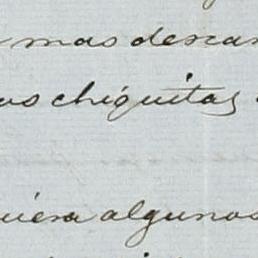 mas descan
as chiquitas
uiera algunos